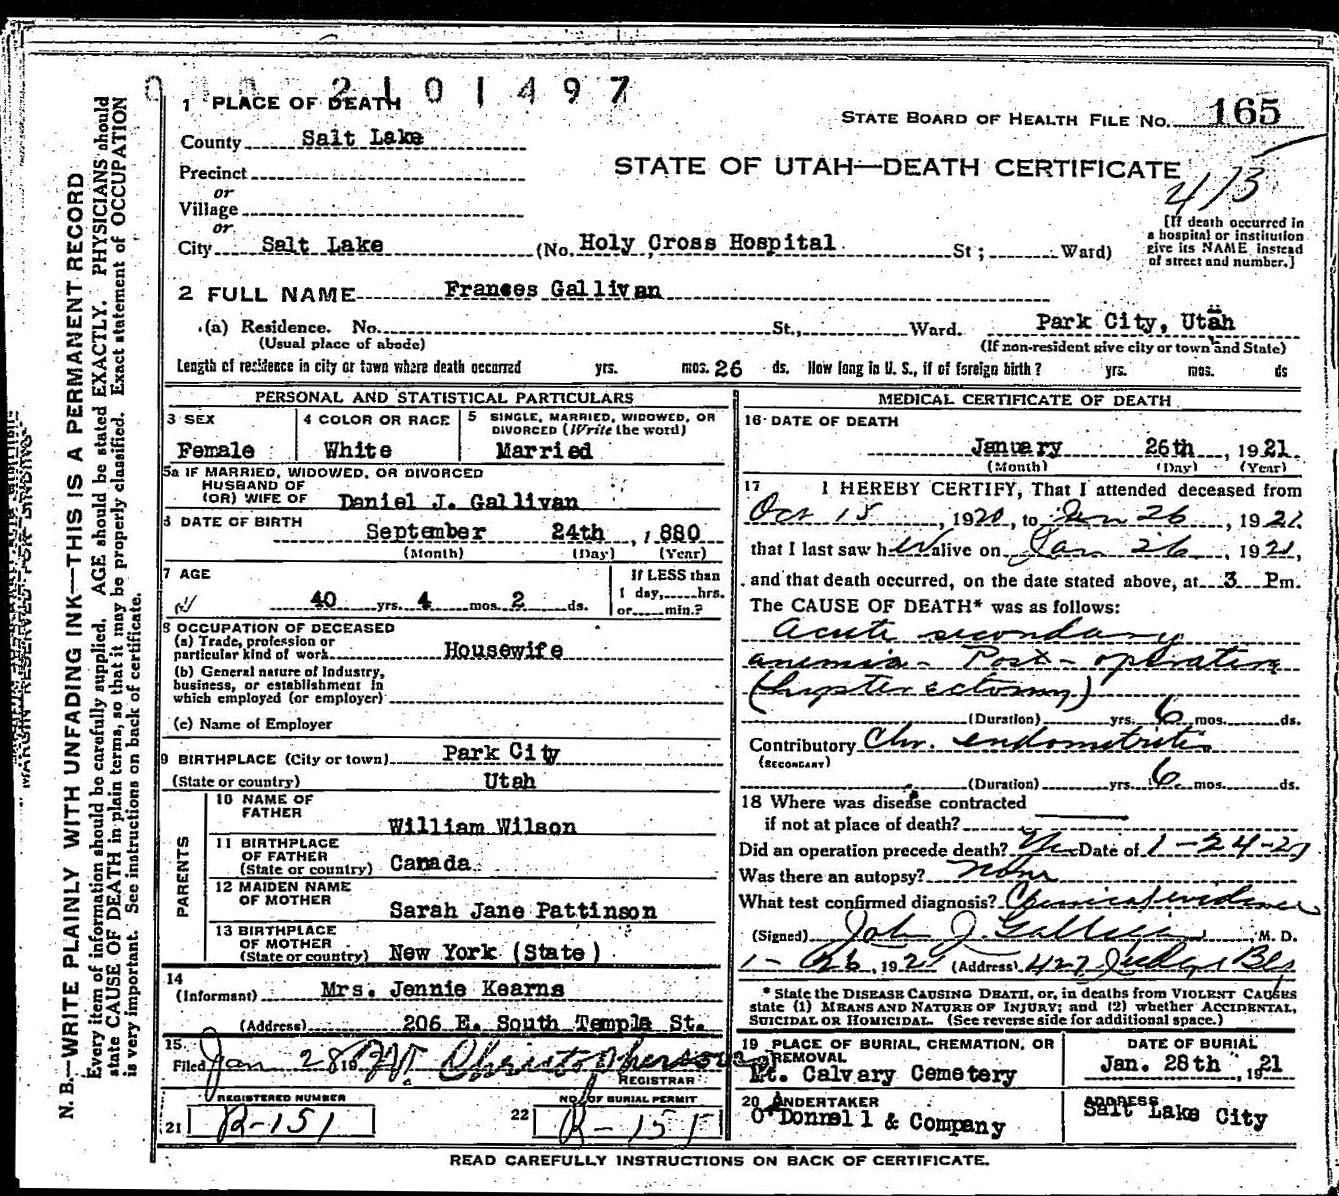 2101497
1 PLACE OF DEATH
STATE BOARD OF HEALTH FILE NO. 165
County Salt Lake
STATE OF UTAH—DEATH CERTIFICATE
Precinct
413
or
Village
or
City Salt Lake (No. Holy Cross Hospital St; Ward)
[If death occurred in
a hospital or institution
give its NAME instead
of street and number.]
2 FULL NAME Frances Gallivan
(a) Residence. No. St., Ward. Park City, Utah
(Usual place of abode) (If non-resident give city or town and State)
Length of residence in city or town where death occurred yrs. mos. 26 ds. How long in U. S., if of foreign birth? yrs. mos. ds
PERSONAL AND STATISTICAL PARTICULARS
3 SEX
Female
4 COLOR OR RACE
White
5 SINGLE, MARRIED, WIDOWED, OR
DIVORCED (Write the word)
Married
5a IF MARRIED, WIDOWED, OR DIVORCED
HUSBAND OF
(OR) WIFE OF Daniel J. Gallivan
6 DATE OF BIRTH
September 24th, 1880
(Month) (Day) (Year)
7 AGE
40 yrs. 4 mos. 2 ds.
If LESS than
1 day, hrs.
or min.?
8 OCCUPATION OF DECEASED
(a) Trade, profession or
particular kind of work Housewife
(b) General nature of Industry,
business, or establishment in
which employed (or employer)
(c) Name of Employer
9 BIRTHPLACE (City or town) Park City
(State or country) Utah
PARENTS
10 NAME OF
FATHER
William Wilson
11 BIRTHPLACE
OF FATHER
(State or country) Canada
12 MAIDEN NAME
OF MOTHER
Sarah Jane Pattinson
13 BIRTHPLACE
OF MOTHER
(State or country) New York (State)
14
(Informant) Mrs. Jennie Kearns
(Address) 206 E. South Temple St.
15
Filed Jan 28 Christopherson
REGISTRAR
REGISTERED NUMBER
21 R-151
NO. OF BURIAL PERMIT
22 R-151
MEDICAL CERTIFICATE OF DEATH
16 DATE OF DEATH
January 26th, 1921.
(Month) (Day) (Year)
17 I HEREBY CERTIFY, That I attended deceased from
Oct 15, 1920, to Jan 26, 1921
that I last saw her alive on Jan 26, 1921,
and that death occurred, on the date stated above, at 3 Pm.
The CAUSE OF DEATH* was as follows:
Acute secondary
anemia - Post-operative
(hysterectomy)
(Duration) yrs. 6 mos. ds.
Contributory Chr. endometritis
(SECONDARY)
(Duration) yrs. 6 mos. ds.
18 Where was disease contracted
if not at place of death?
Did an operation precede death? Yes Date of 1-24-21
Was there an autopsy? None
What test confirmed diagnosis? Clinical evidence
(Signed) John J. Gallivan, M. D.
1-26, 1921 (Address) 427 Judge Bldg
* State the DISEASE CAUSING DEATH, or, in deaths from VIOLENT CAUSES
state (1) MEANS AND NATURE OF INJURY; and (2) whether ACCIDENTAL,
SUICIDAL OR HOMICIDAL. (See reverse side for additional space.)
19 PLACE OF BURIAL, CREMATION, OR
REMOVAL
Mt. Calvary Cemetery
DATE OF BURIAL
Jan. 28th, 1921
20 UNDERTAKER
O'Donnell & Company
ADDRESS
Salt Lake City
READ CAREFULLY INSTRUCTIONS ON BACK OF CERTIFICATE.
MARGIN RESERVED FOR BINDING
N. B.—WRITE PLAINLY WITH UNFADING INK—THIS IS A PERMANENT RECORD
Every item of information should be carefully supplied. AGE should be stated EXACTLY. PHYSICIANS should
state CAUSE OF DEATH in plain terms, so that it may be properly classified. Exact statement of OCCUPATION
is very important. See instructions on back of certificate.